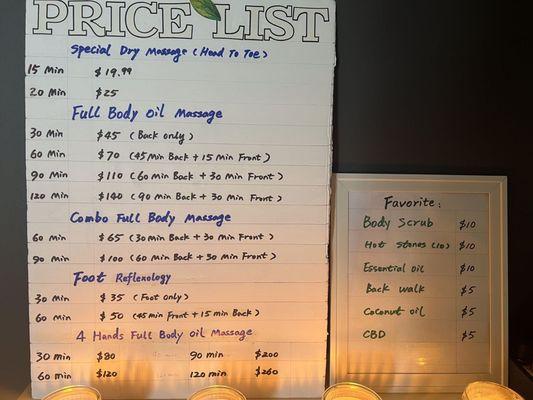 PRICE LIST
Special Dry Massage (Head To Toe)
15 Min $19.99
20 Min $25
Full Body Oil Massage
30 Min $45 (Back only)
60 Min $70 (45 Min Back + 15 Min Front)
90 Min $110 (60 Min Back + 30 Min Front)
120 Min $140 (90 Min Back + 30 Min Front)
Combo Full Body Massage
60 Min $65 (30 Min Back + 30 Min Front)
90 Min $100 (60 Min Back + 30 Min Front)
Foot Reflexology
30 Min $35 (Foot only)
60 Min $50 (45 Min Front + 15 Min Back)
4 Hands Full Body Oil Massage
30 min $80 90 min $200
60 min $120 120 min $260
Favorite:
Body Scrub $10
Hot Stones (10) $10
Essential oil $10
Back walk $5
Coconut oil $5
CBD $5